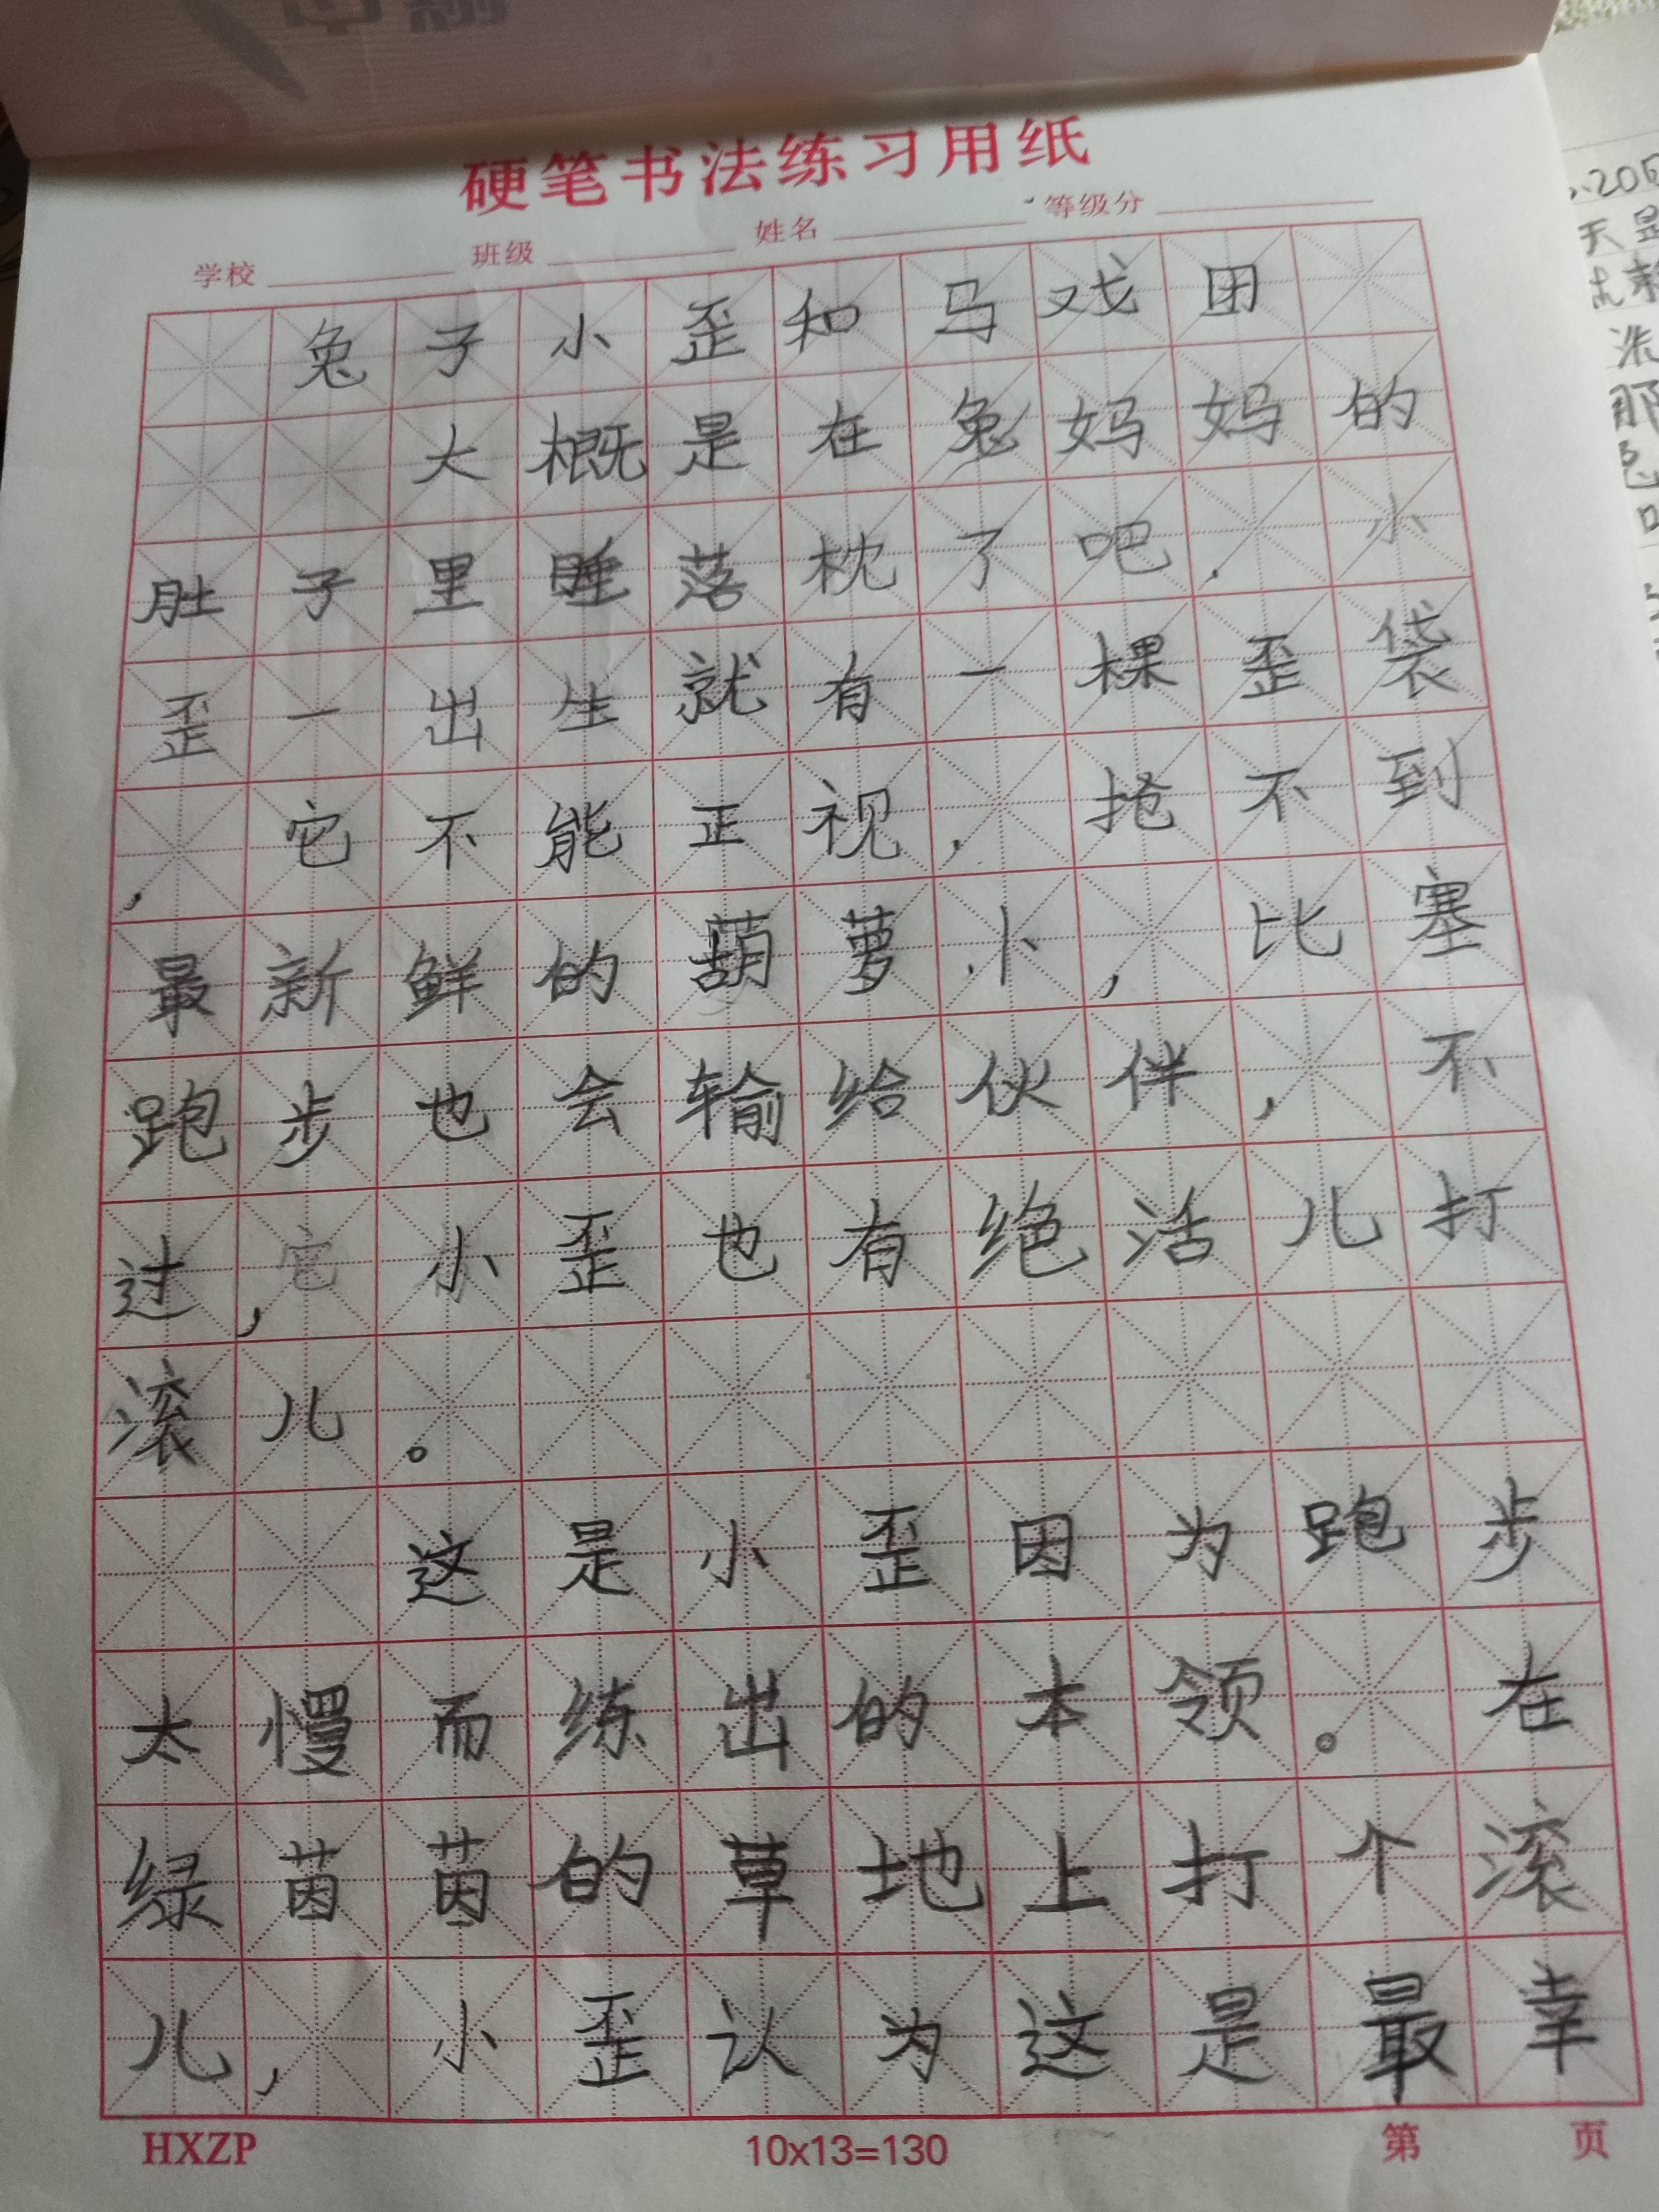 硬笔书法练习用纸
学校 班级 姓名 等级分
兔子小歪和马戏团
大概是在兔妈妈的
肚子里睡落枕了吧.小
歪一出生就有一棵歪袋
,它不能正视,抢不到
最新鲜的葫萝卜,比塞
跑步也会输给伙伴,不
过,它小歪也有绝活儿打
滚儿。
这是小歪因为跑步
太慢而练出的本领。在
绿茵茵的草地上打个滚
儿,小歪认为这是最幸
HXZP 10x13=130 第 页